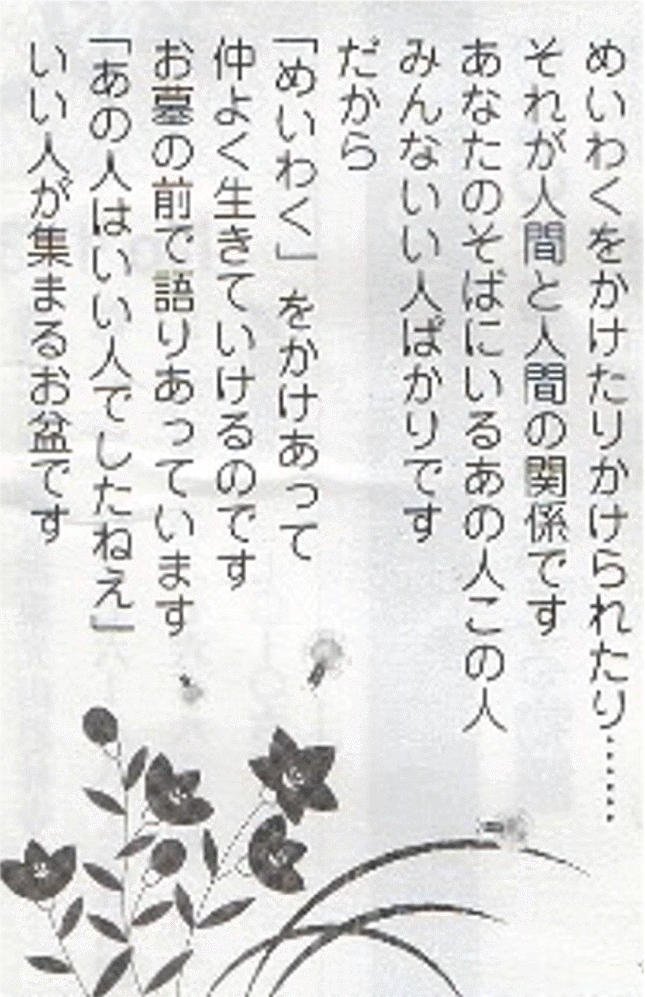 めいわくをかけたりかけられたり……
それが人間と人間の関係です
あなたのそばにいるあの人この人
みんないい人ばかりです
だから
「めいわく」をかけあって
仲よく生きていけるのです
お墓の前で語りあっています
「あの人はいい人でしたねえ」
いい人が集まるお盆です